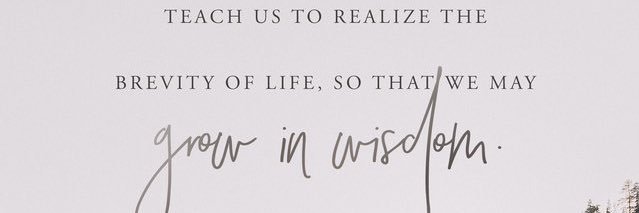 TEACH US TO REALIZE THE
BREVITY OF LIFE, SO THAT WE MAY
grow in wisdom.